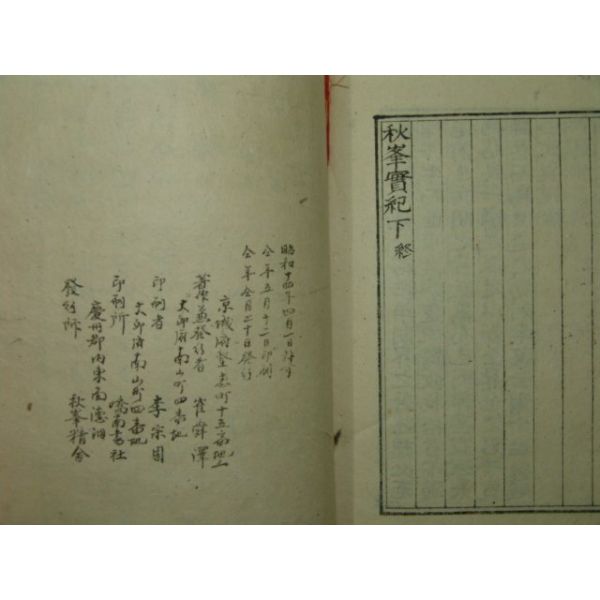 秋峯實紀下 終
昭和十四年四月一日
仝年五月十二日印刷
仝年仝月二十日發行
京城府堅志町十五番地
著作兼發行者 崔舜澤
大邱府南山町四番地
印刷者 李宗國
大邱府南山町四番地
印刷所 嶠南書社
慶州郡內東面德洞
發行所 秋峯精舍